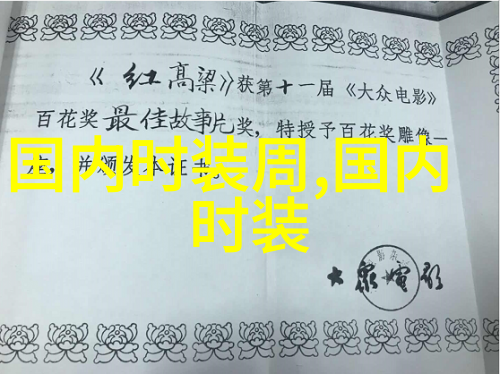 《红高粱》获第十一届《大众电影》
百花奖最佳故事片奖，特授予百花奖雕像一
座，并颁发本证书。
国内时装周,国内
时装
大众电影